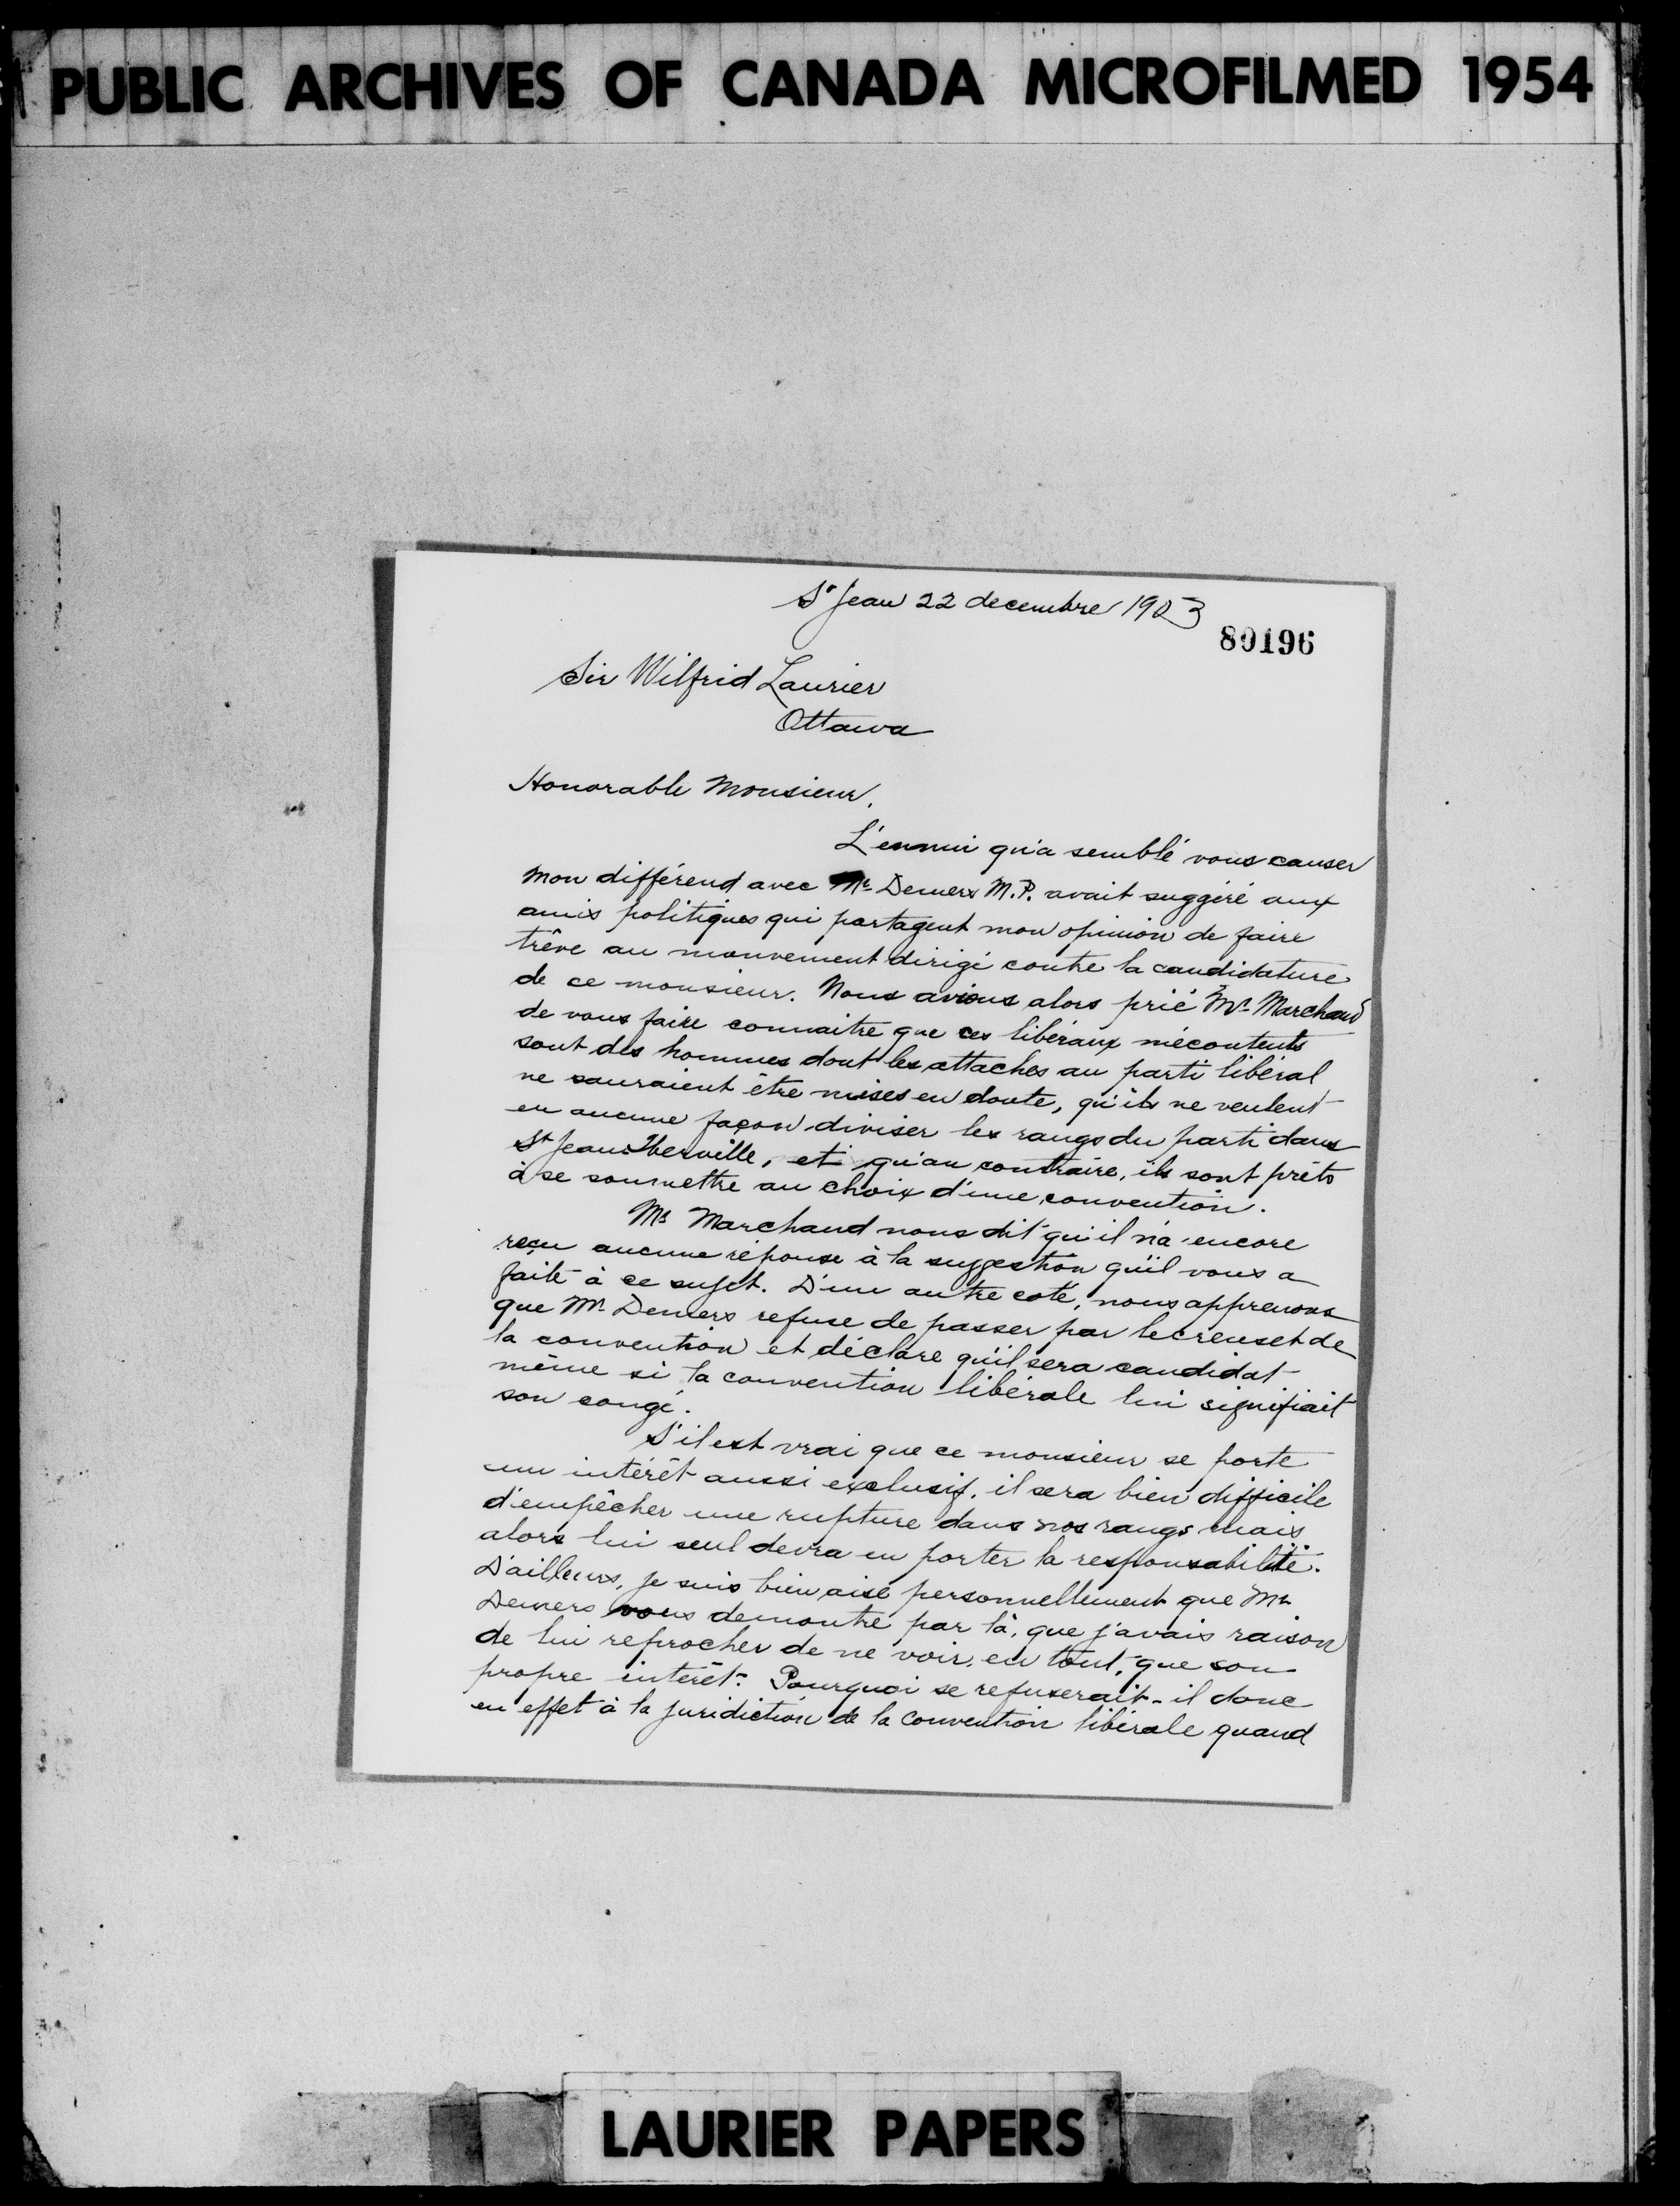 PUBLIC ARCHIVES OF CANADA MICROFILMED 1954
St Jean 22 decembre 1903
80196
Sir Wilfrid Laurier
Ottawa
Honorable Monsieur,
L'ennui qu'a semblé vous causer
mon différend avec Mr Demers M.P. avait suggéré aux
amis politiques qui partagent mon opinion de faire
trêve au mouvement dirigé contre la candidature
de ce monsieur. Nous avions alors prié Mr Marchand
de vous faire connaitre que ces libéraux mécontents
sont des hommes dont les attaches au parti libéral
ne sauraient être mises en doute, qu'ils ne veulent
en aucune façon diviser les rangs du parti dans
St Jean Iberville, et qu'au contraire, ils sont prêts
à se soumettre au choix d'une convention.
Mr Marchand nous dit qu'il n'a encore
reçu aucune réponse à la suggestion qu'il vous a
faite à ce sujet. D'un autre coté, nous apprenons
que Mr Demers refuse de passer par le creuset de
la convention et déclare qu'il sera candidat
même si la convention libérale lui signifiait
son congé.
S'il est vrai que ce monsieur se porte
un intérêt aussi exclusif, il sera bien difficile
d'empêcher une rupture dans nos rangs mais
alors lui seul devra en porter la responsabilité.
D'ailleurs, je suis bien aise personnellement que Mr
Demers vous demontre par là, que j'avais raison
de lui reprocher de ne voir, en tout, que son
propre intérêt. Pourquoi se refuserait-il donc
en effet à la juridiction de la convention libérale quand
LAURIER PAPERS